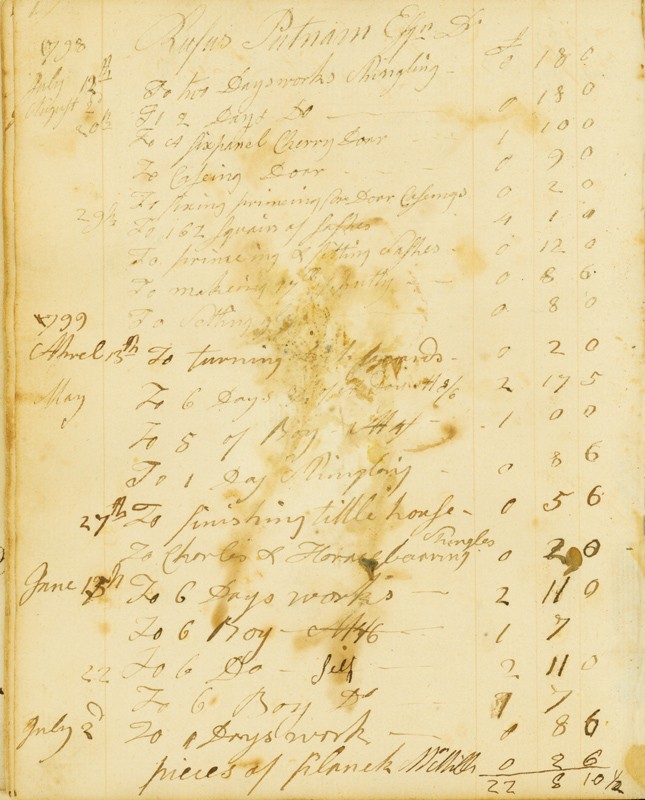 1798 Rufus Putnam Esqr Dr £
July 12th To too Daysworks Shingling 0 18 0
August 2d To 2 Days Do 0 18 0
20th To a sixpanel Cherry Door 1 10 0
To Caseing Door 0 9 0
To fixing primeing for Door Caseings 0 2 0
29th To 162 Squairs of Sashes 4 1 0
To primeing & sitting Sashes 0 12 0
To makeing 0 8 6
To 0 8 0
1799
Aprel 13th To turning 0 2 0
May To 6 Days 8/6 2 17 5
To 5 of Boy At 4/ 1 0 0
To 1 Day Shingling 0 8 6
27th To finishing little house 0 5 6
To Charlis & Horace bearing Shingles 0 2 0
June 15th To 6 Days works 2 11 0
To 6 Boy At 4/6 1 7
22 To 6 Do Self 2 11 0
To 6 Boy Do 1 7
July 2d To 1 Days work 0 8 6
pieces of planck 0 2 6
22 8 10 ½